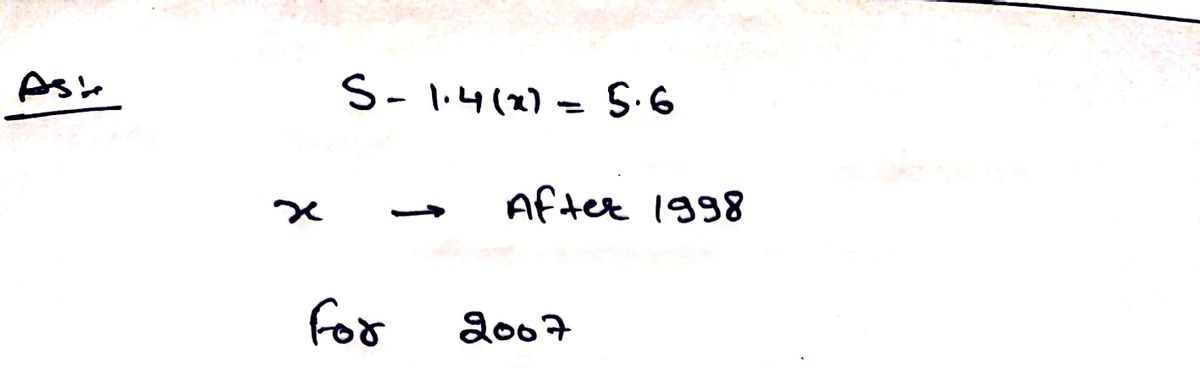 Ans:
S - 1.4(x) = 5.6
x → After 1998
for 2007